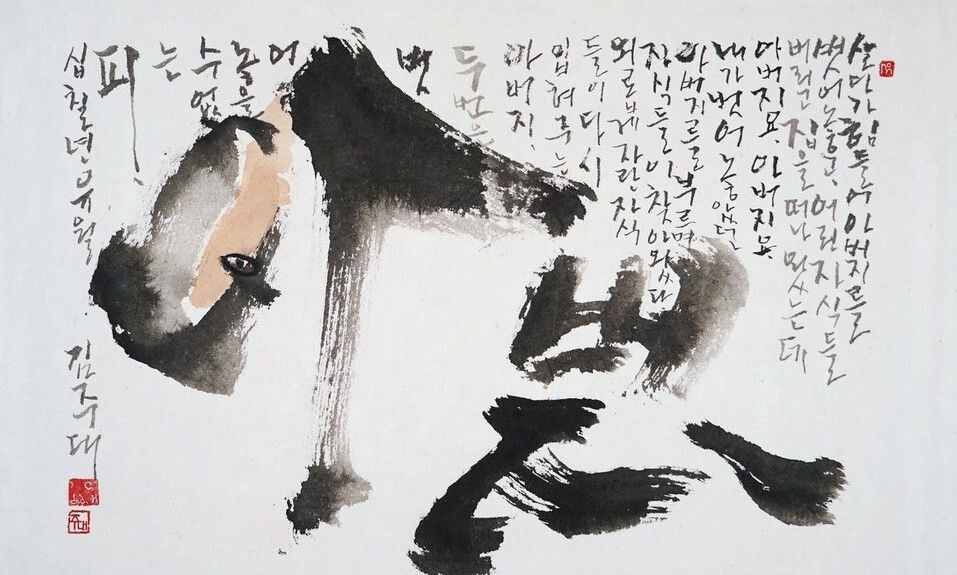 살다가 힘들어 아버지를
벗어놓고, 어린 자식들
버리고 집을 떠나 왔는데
아버지요, 아버지요
내가 벗어 놓았던
아버지를 부르며
자식들이 찾아왔다
외롭게 자란 자식
들이 다시
입혀주는
아버지,
두 번은
벗
어
놓을
수 없
는
피.
십칠년 유월 김주대